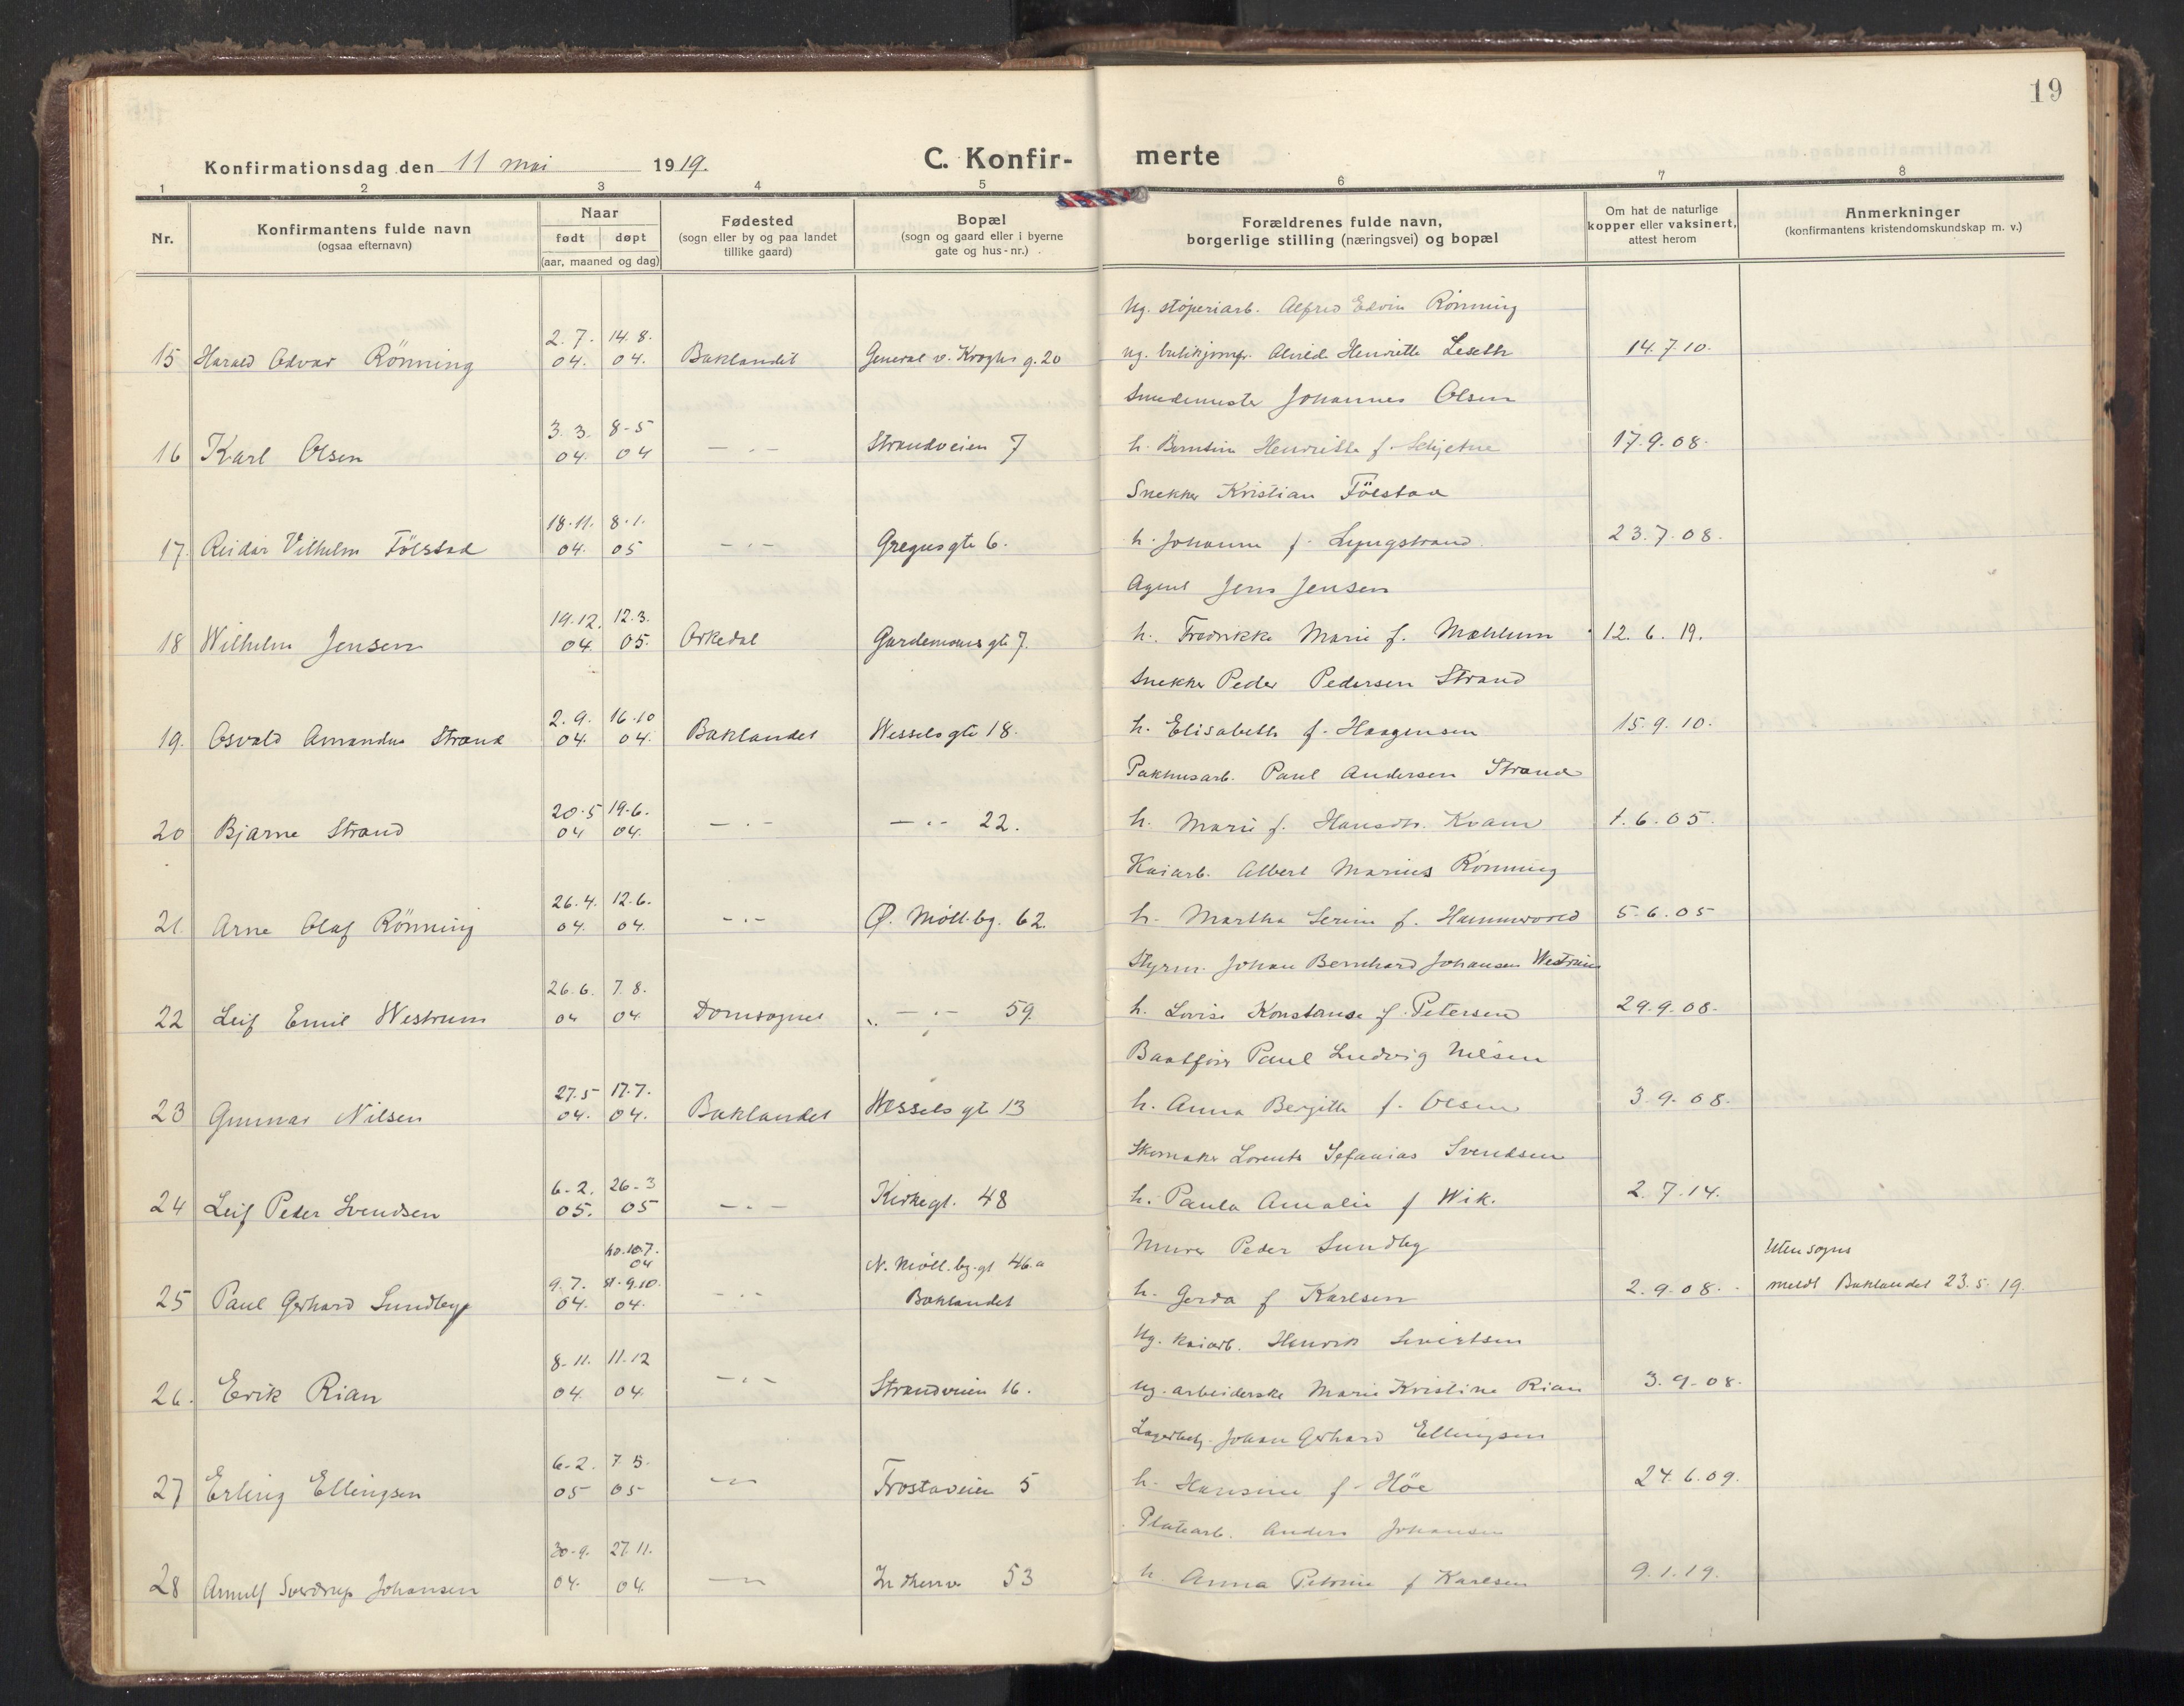 19
Konfirmationsdag den 11 mai 1919.
C. Konfir- merte
1 2 3 4 5 6 7 8
Nr.
Konfirmantens fulde navn
(ogsaa efternavn)
Naar
født døpt
(aar, maaned og dag)
Fødested
(sogn eller by og paa landet
tillike gaard)
Bopæl
(sogn og gaard eller i byerne
gate og hus-nr.)
Forældrenes fulde navn,
borgerlige stilling (næringsvei) og bopæl
Om hat de naturlige
kopper eller vaksinert,
attest herom
Anmerkninger
(konfirmantens kristendomskundskap m. v.)
Ug. støperiarb. Alfred Edvin Rönning
2. 7. 14. 8.
15 Harald Odvar Rönning 04. 04. Baklandet General v. Kroghs g. 20 ug. butikjomfr. Henriette Leseth 14.7.10.
Smedmester Johannes Olsen
3. 3. 8-5
16 Karl Olsen 04. 04 — . — Strandveien 7 h. Berntine Henriette f. Schjetne 17.9.08.
Snekker Kristian Fölstad
18.11. 8.1.
17. Reidar Vilhelm Fölstad 04. 05 — . — Gregusgte 6. h. Johanna f. Lyngstrand 23.7.08.
Agent Jens Jensen
19.12. 12.3.
18 Wilhelm Jensen 04. 05. Orkedal Gardemoens gt. 7. h. Fredrikke Marie f. Mæhlum 12.6.19.
Snekker Peder Pedersen Strand
2.9. 16.10
19. Osvald Amandus Strand 04. 04. Baklandet Wesselsgte 18. h. Elisabeth f. Haagensen 15.9.10.
Pakhusarb. Paul Andersen Strand
20.5 19.6.
20 Bjarne Strand 04 04. — . — — . — 22. h. Marie f. Hansdtr. Kvam 1.6.05.
Kaiarb. Albert Marius Rönning
26.4. 12.6.
21. Arne Olaf Rönning 04. 04. — . — Ø. Möll.bg. 62. h. Martha Serine f. 5.6.05
Styrm. Johan Bernhard Johansen Westrum
26.6. 7.8.
22 Leif Emil Westrum 04 04. Domsognet — . — 59. h. Lovise Konstanse f. Petersen 29.9.08.
Baatfører Paul Ludvig Nilsen
27.5 17.7.
23 Gunnar Nilsen 04. 04. Baklandet Wessels gt. 13 h. Anna Bergitte f. Olsen 3.9.08.
Skomaker Lorents Sefanias Svendsen
6-2. 26-3
24 Leif Peder Svendsen 05. 05 — . — Kirkegt. 48 h. Paula Amalie f Wik. 2.7.14.
hd. 10.7. Murer Peder Sundby
04 N. Möll.bg.gt 46.a Utensogns
9.7. st. 9.10.
25 Paul Gerhard Sundbye 04. 04. — . — Baklandet h. Gerda f Karlsen 2.9.08. meldt Baklandet 23.5.19.
Ug. kaiarb. Henrik Sivertsen
8-11. 11.12
26. Erik Rian 04. 04. — . — Strandveien 16. ug. arbeiderske Marie Kristine Rian 3.9.08.
Lagerbetj. Johan Gerhard Ellingsen
6-2. 7.5.
27 Erling Ellingsen 05 05 — . — Frostaveien 5 h. Hansine f. Höe 24.6.09.
Platearb. Anders Johansen
30-9. 27.11.
28 Arnulf Sverdrup Johansen 04. 04. — . — Indherrv. 53 h. Anna Petrine f Karlsen 9.1.19.